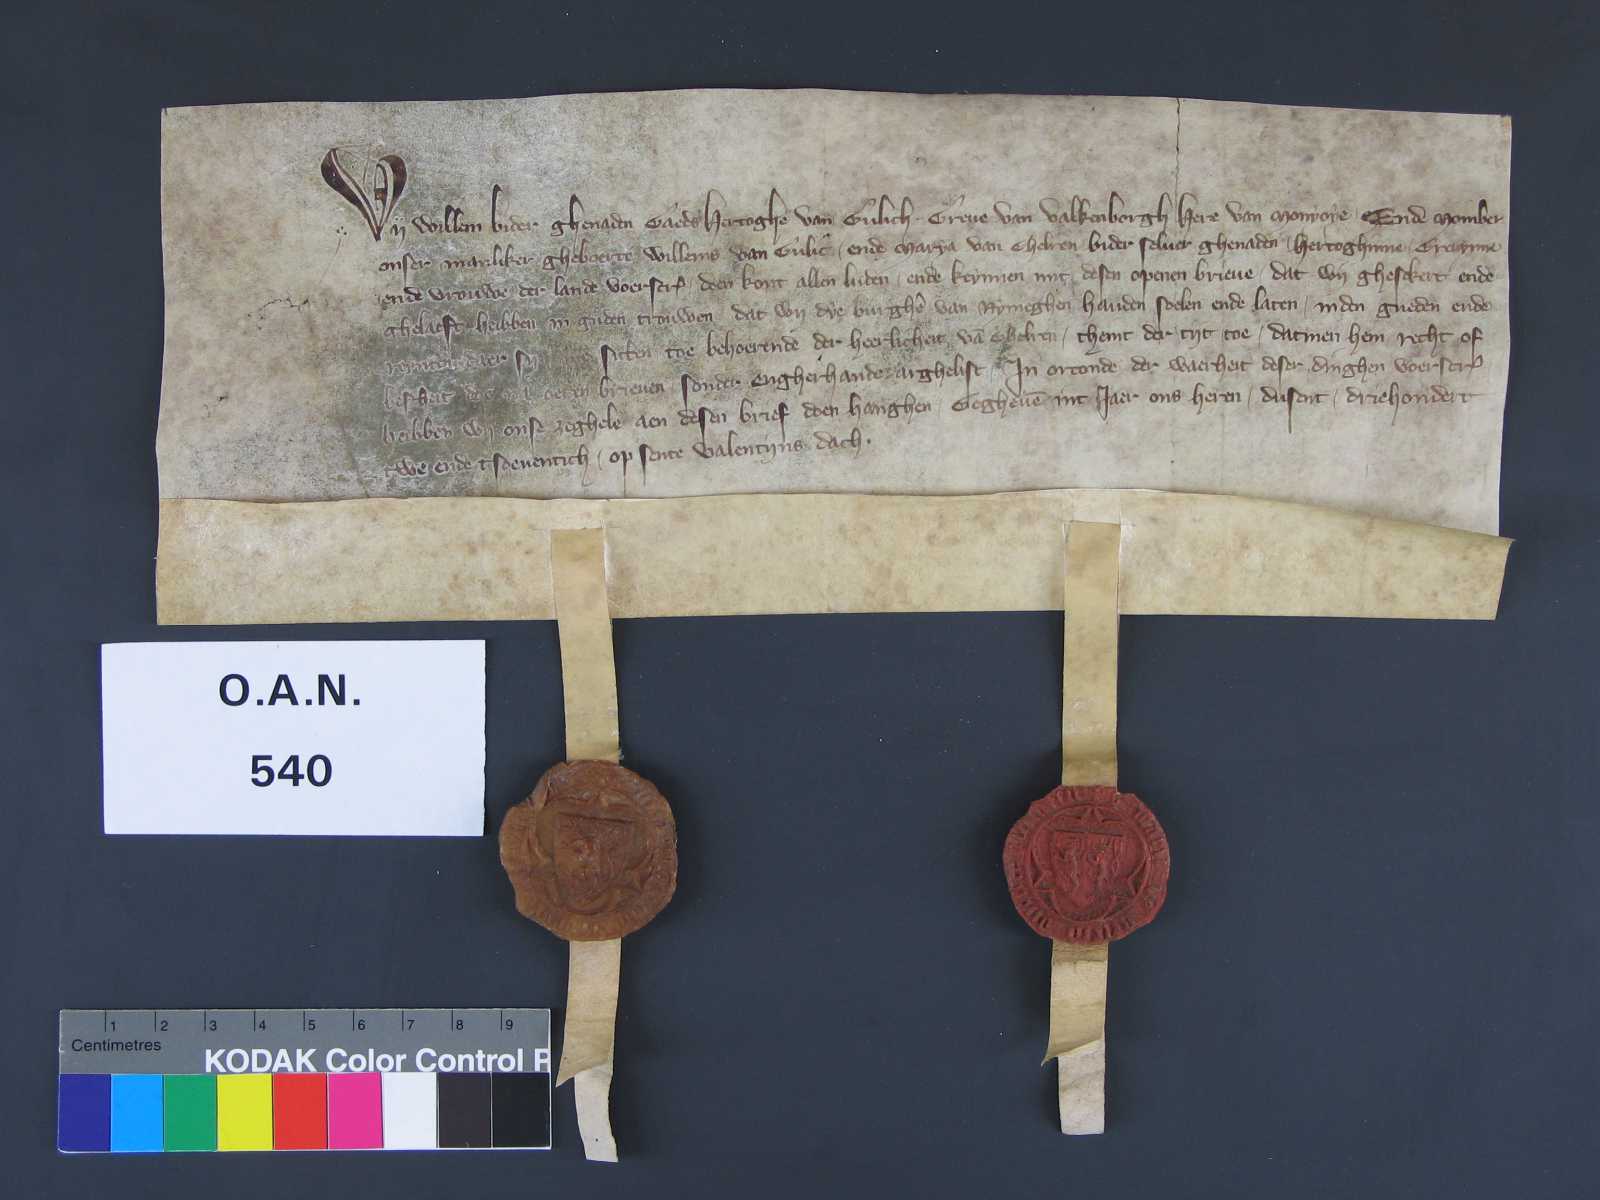 Wij willem bider ghenaden Gaeds Hertoghe van Gulich Greue van valkenborgh Here van Monyoye Ende Momber
onser manliker gheboerte willems van Gulic ende Marya van Ghelren bider seluer ghenaden Hertoghinne Greuynne
ende vrouwe der lande voerscr doen kont allen luden ende kennen mit desen openen brieue dat wij ghesekert ende
ghelaeft hebben in guden trouwen dat wij dye burghe van Nymeghen hauden soelen ende laten inden gueden ende
daer sy sitten toe behoerende der heerlicheit va Ghelren themt der tyt toe datmen hem recht of
bescheit brieuen sonder engherhande arghelist In orconde der waerheit deser dinghen voerscr
hebben wij onse zeghele aen desen brief doen hanghen Gegheue int Jaer ons heren dusent driehondert
twe ende tsoeuentich op sente valentijns dach
O.A.N.
540
1 2 3 4 5 6 7 8 9
Centimetres
KODAK Color Control P